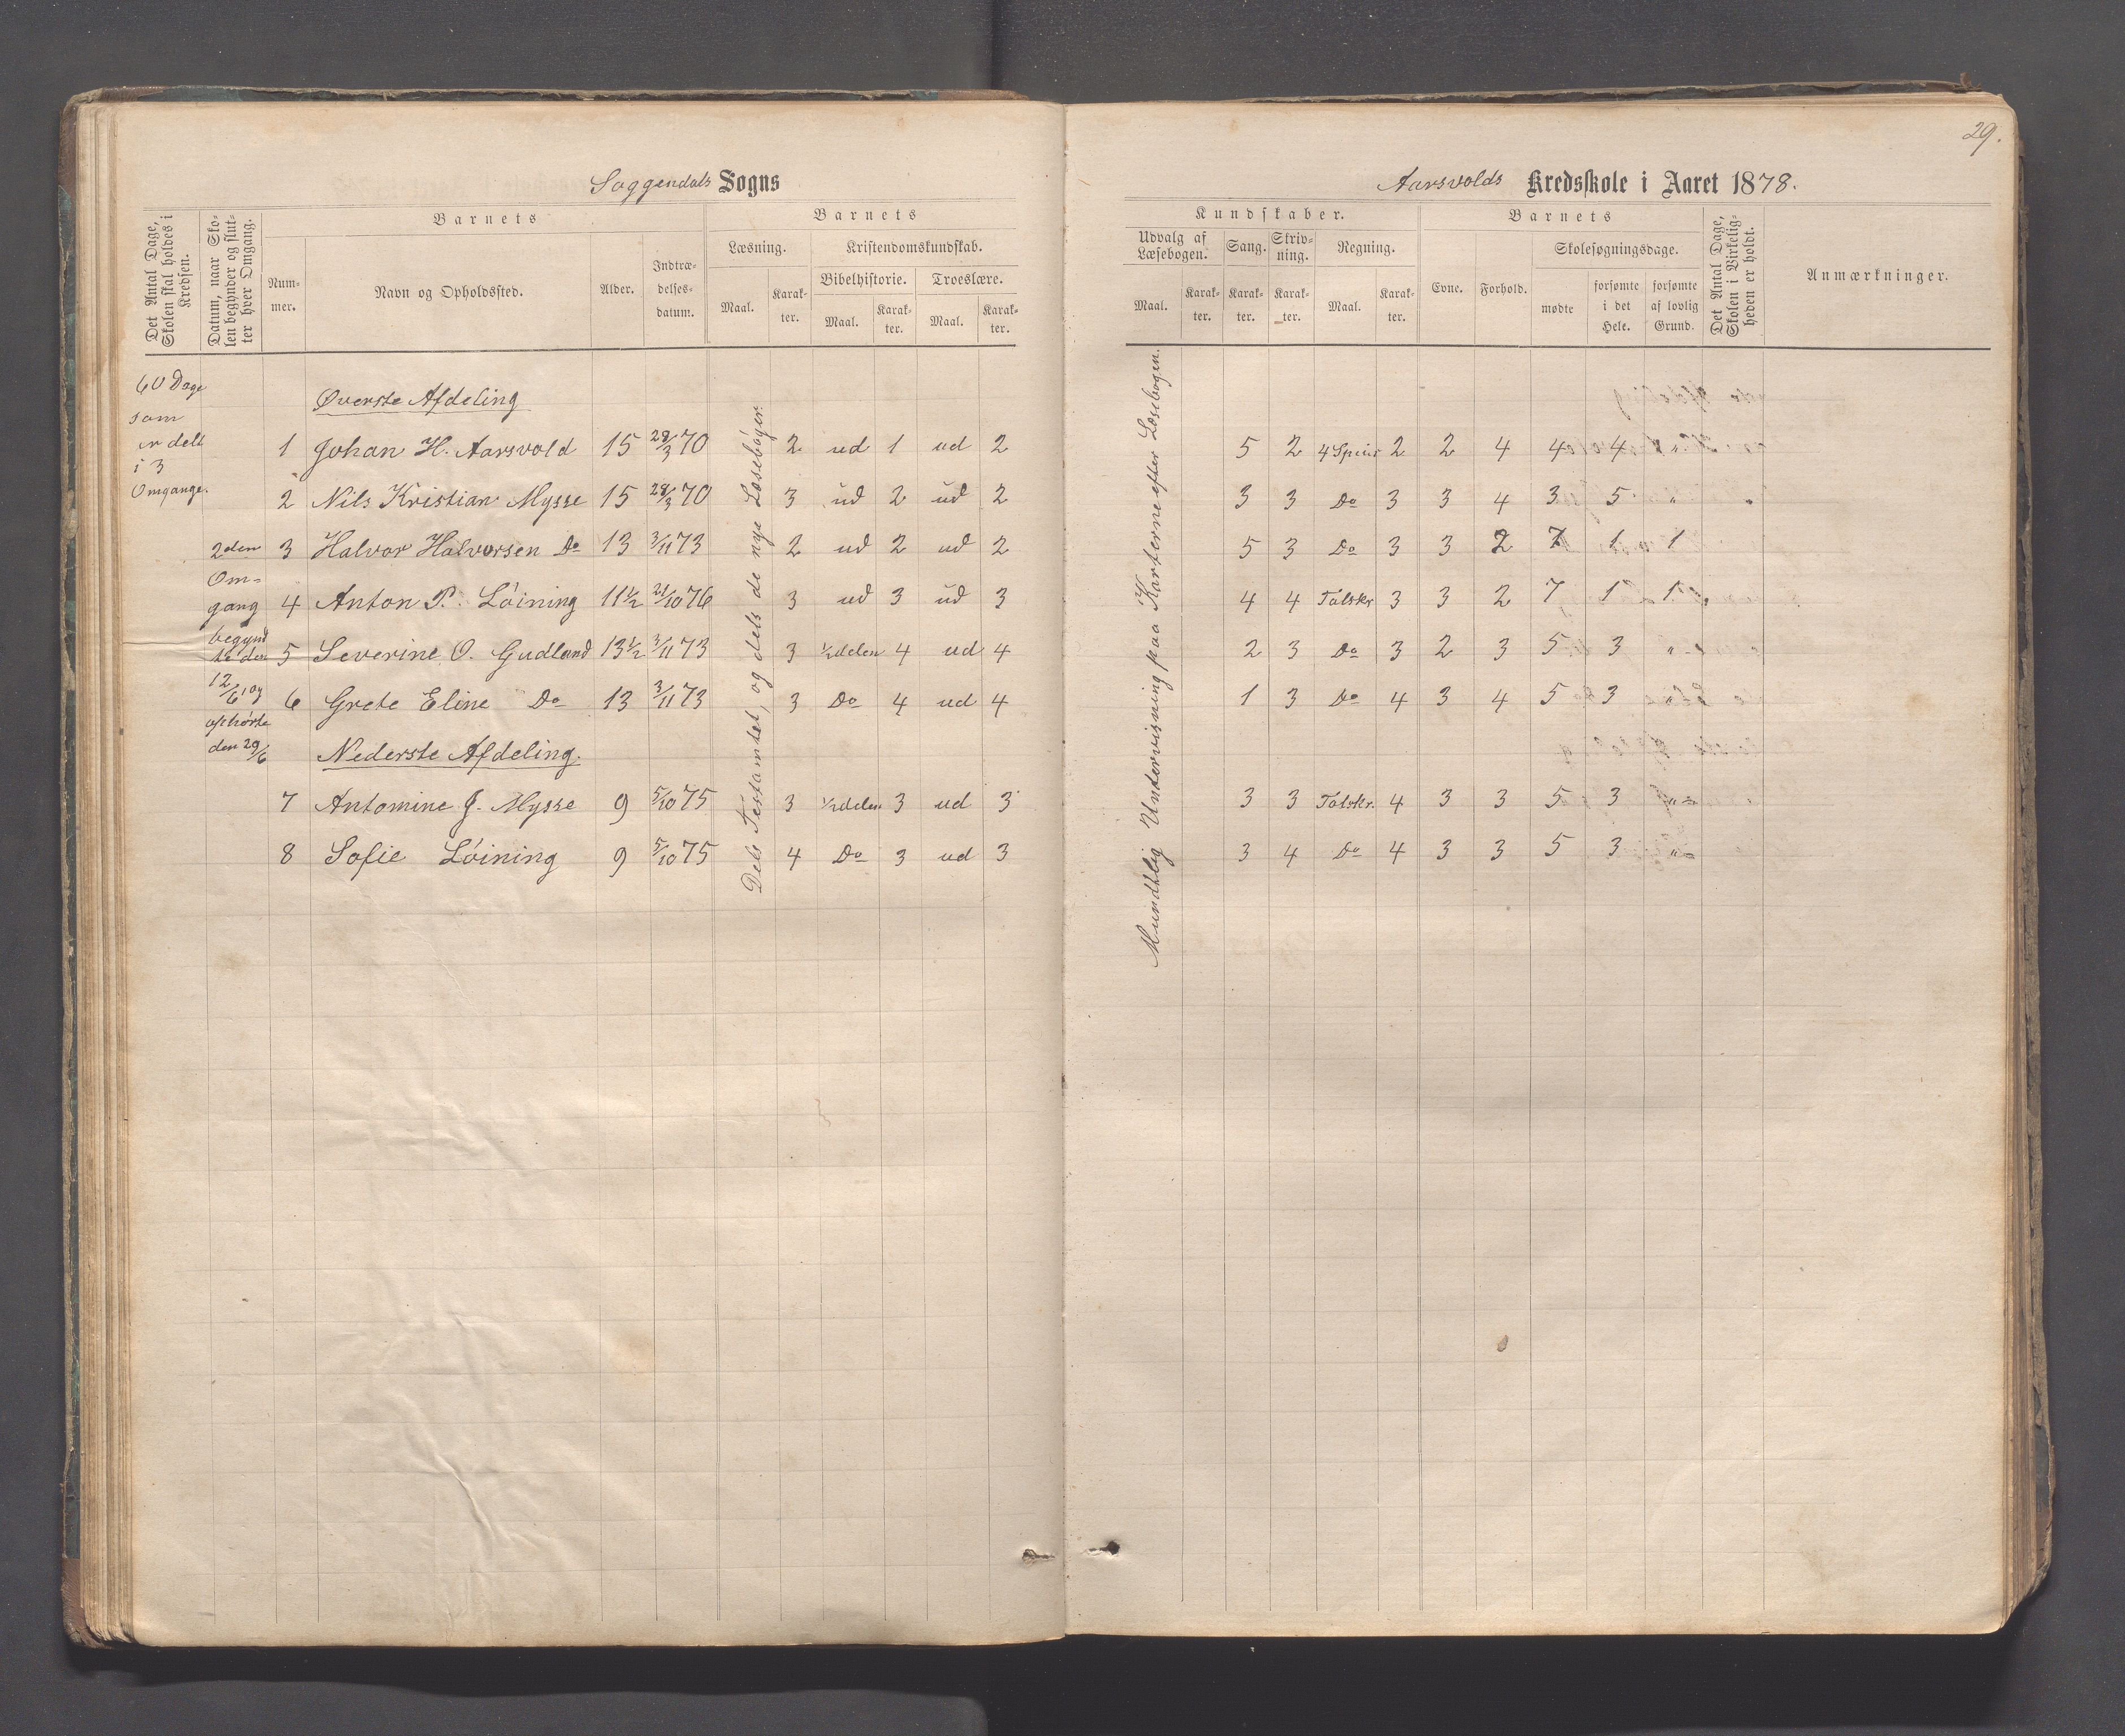 29.
Soggendals Sogns
Aarsvolds Kredsskole i Aaret 1878.
Det Antal Dage, Skolen skal holdes i Kredsen.
Datum, naar Skolen begynder og slutter hver Omgang.
Barnets
Nummer.
Navn og Opholdssted.
Alder.
Indtrædelsesdatum.
Barnets
Læsning.
Maal.
Karakter.
Kristendomskundskab.
Bibelhistorie.
Maal.
Karakter.
Troeslære.
Maal.
Karakter.
Kundskaber.
Udvalg af Læsebogen.
Maal.
Karakter.
Sang.
Karakter.
Skrivning.
Karakter.
Regning.
Maal.
Karakter.
Barnets
Evne.
Forhold.
Skolesøgningsdage.
mødte
forsømte i det Hele.
forsømte af lovlig Grund.
Det Antal Dage, Skolen i Virkeligheden er holdt.
Anmærkninger.
60 Dage
som
er delt
i 3
Omgange.
2den
Om-
gang
begynd
te den
12/6 og
ophørte
den 29/6
Dels Testamtet, og dels de nye Læsebøger.
Mundtlig Undervisning paa Karterne efter Læsebogen.
Øverste Afdeling
1 Johan H. Aarsvold 15 28/3 70 2 ud 1 ud 2 5 2 4 Speiis 2 2 4 4 4 "
2 Nils Kristian Mysse 15 28/3 70 3 ud 2 ud 2 3 3 Do 3 3 4 3 5 "
3 Halvor Halvorsen Do 13 3/11 73 2 ud 2 ud 2 5 3 Do 3 3 2 7 1 1
4 Anton P. Løining 11½ 21/10 76 3 ud 3 ud 3 4 4 Talskr 3 3 2 7 1 1
5 Severine O. Gudland 13½ 3/11 73 3 ½delen 4 ud 4 2 3 Do 3 2 3 5 3 "
6 Grete Eline Do 13 3/11 73 3 Do 4 ud 4 1 3 Do 4 3 4 5 3 "
Nederste Afdeling.
7 Antomine J. Mysse 9 5/10 75 3 ½delen 3 ud 3 3 3 Talskr. 4 3 3 5 3 "
8 Sofie Løining 9 5/10 75 4 Do 3 ud 3 3 4 Do 4 3 3 5 3 "